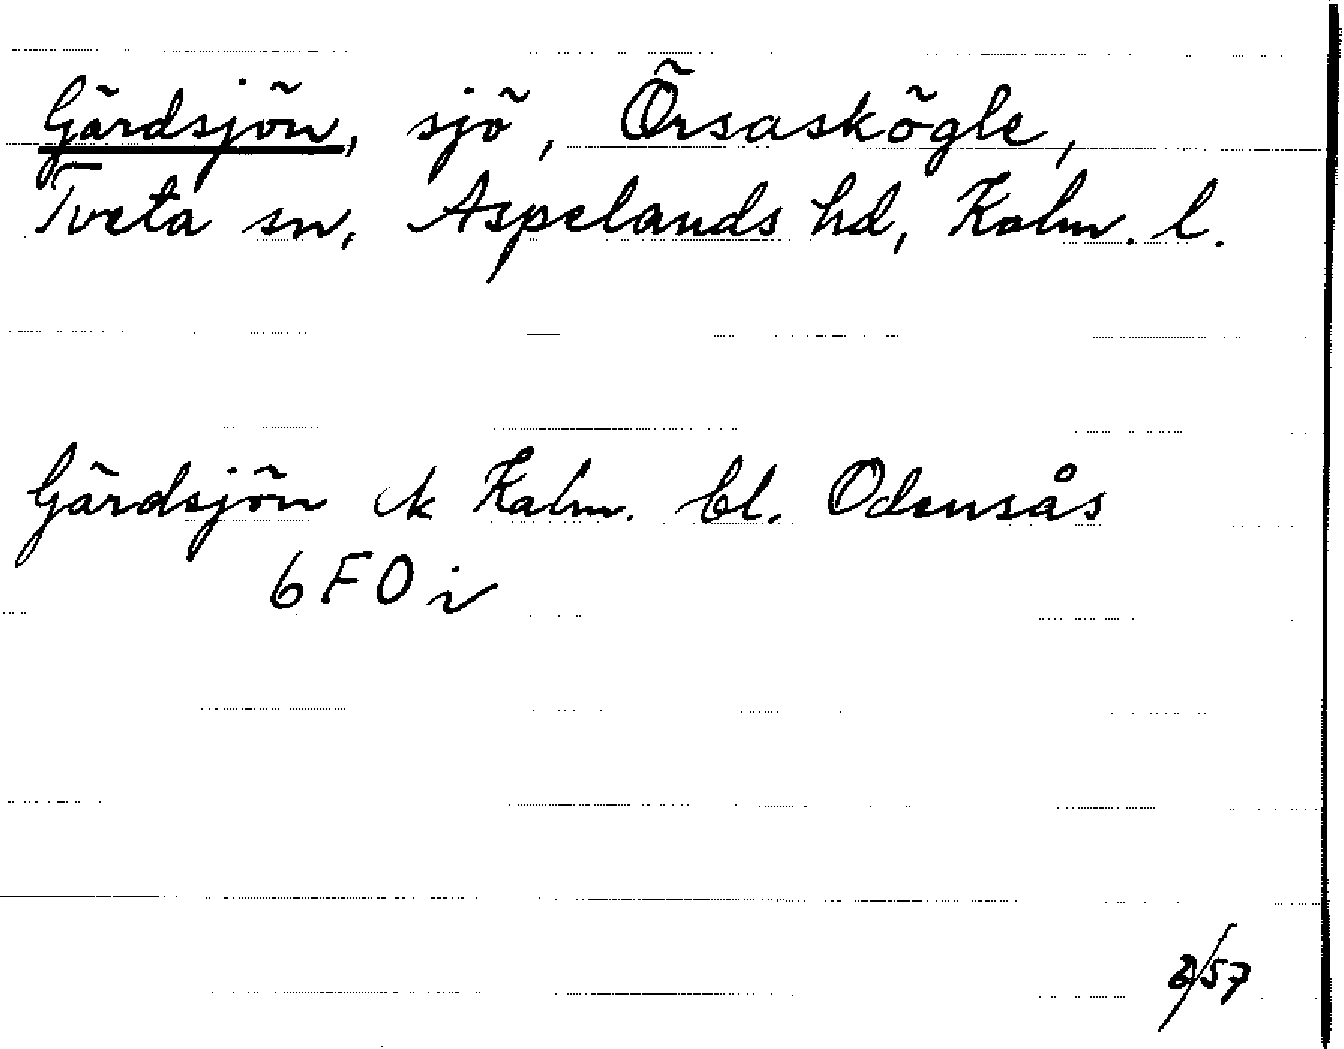 Gärdsjön, sjö, Örsaskögle,
Tveta sn, Aspelands hd, Kalm. l.
Gärdsjön ek Kalm. bl. Odensås
6F0i
2/57